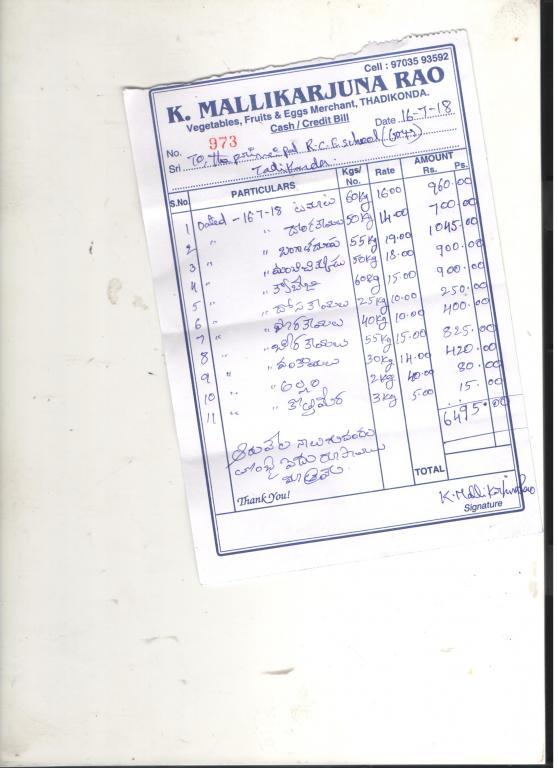 Cell : 97035 93592
K. MALLIKARJUNA RAO
Vegetables, Fruits & Eggs Merchant, THADIKONDA.
Cash / Credit Bill
No. 973 Date 16-7-18
Sri To, the principal R.C.E. school (Boys)
Tadikonda.
S.No. PARTICULARS Kgs/No. Rate AMOUNT Rs. Ps.
1 Dated - 16-7-18 టమాటు 60kg 16.00 960.00
2 " " దొండకాయలు 50kg 14.00 700.00
3 " " బంగాళదుంప 55kg 19.00 1045.00
4 " " పచ్చిమిర్చి 50kg 18.00 900.00
5 " " క్యాబేజి 60kg 15.00 900.00
6 " " దోసకాయలు 25kg 10.00 250.00
7 " " సొరకాయలు 40kg 10.00 400.00
8 " " బీరకాయలు 55kg 15.00 825.00
9 " " వంకాయలు 30kg 14.00 420.00
10 " " అల్లం 2kg 40.00 80.00
11 " " కొత్తిమీర 3kg 5.00 15.00
6495.00
ఆరువేల నాలుగువందల
తొంభై ఐదు రూపాయలు
మాత్రమే.
TOTAL
Thank You!
K. Mallikarjunarao
Signature